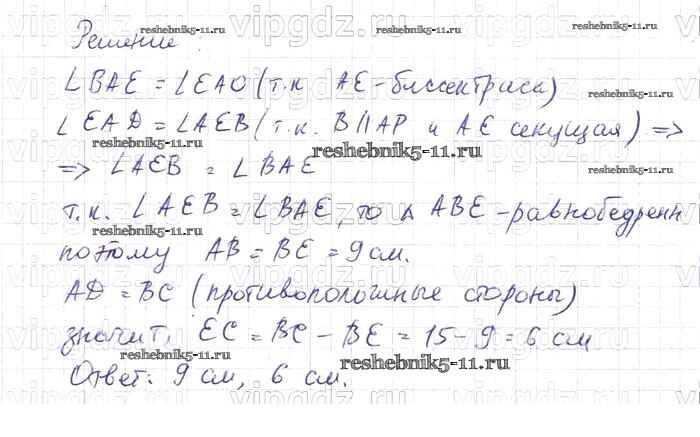 Решение
∠BAE = ∠EAO (т.к AE-биссектриса)
∠EAD = ∠AEB (т.к. B||AP и AE секущая) =>
=> ∠AEB = ∠BAE
т.к. ∠AEB = ∠BAE, то △ ABE - равнобедренн
поэтому AB = BE = 9 см.
AD = BC (противоположные стороны)
значит, EC = BC - BE = 15 - 9 = 6 см
Ответ: 9 см, 6 см.
vipgdz.ru
reshebnik5-11.ru